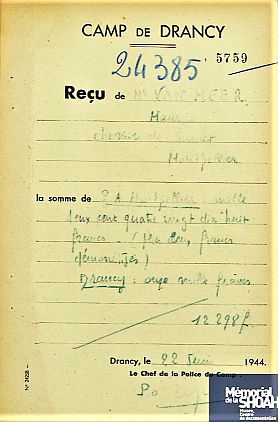 CAMP DE DRANCY
24385 5759
Reçu de M VAN MEER
Maurice
chemin de
Montpellier
la somme de P.A Montpellier : mille
deux cent quatre vingt dix huit
francs - ( deux francs
démonétisés )
Drancy : onze mille francs
12 298 f
Drancy, le 22 1944.
Le Chef de la Police du Camp :
Mémorial
de la
SHOAH
Musée,
Centre de
documentation